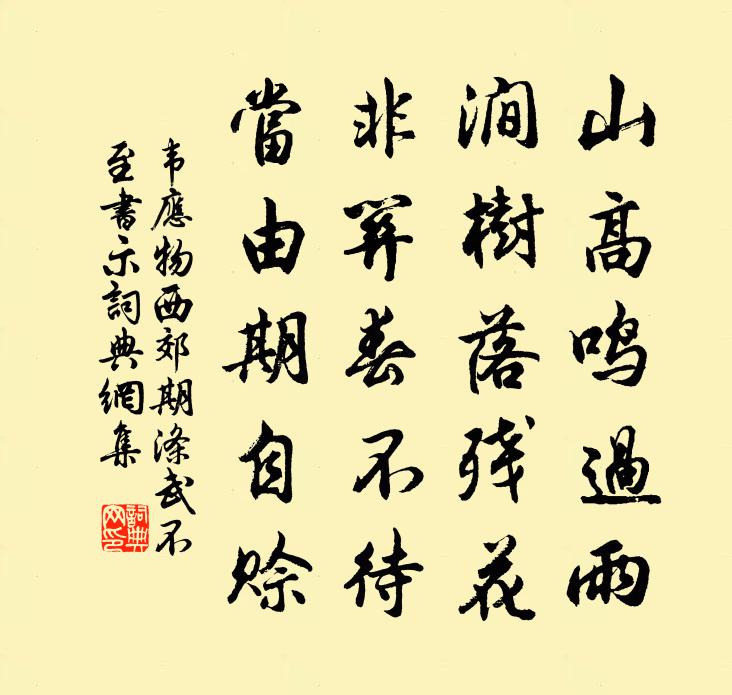 山高鸣過雨
澗樹落残花
非關春不待
當由期自賒
韦應物西郊期滌武不
至書示詞典網集
詞典网印